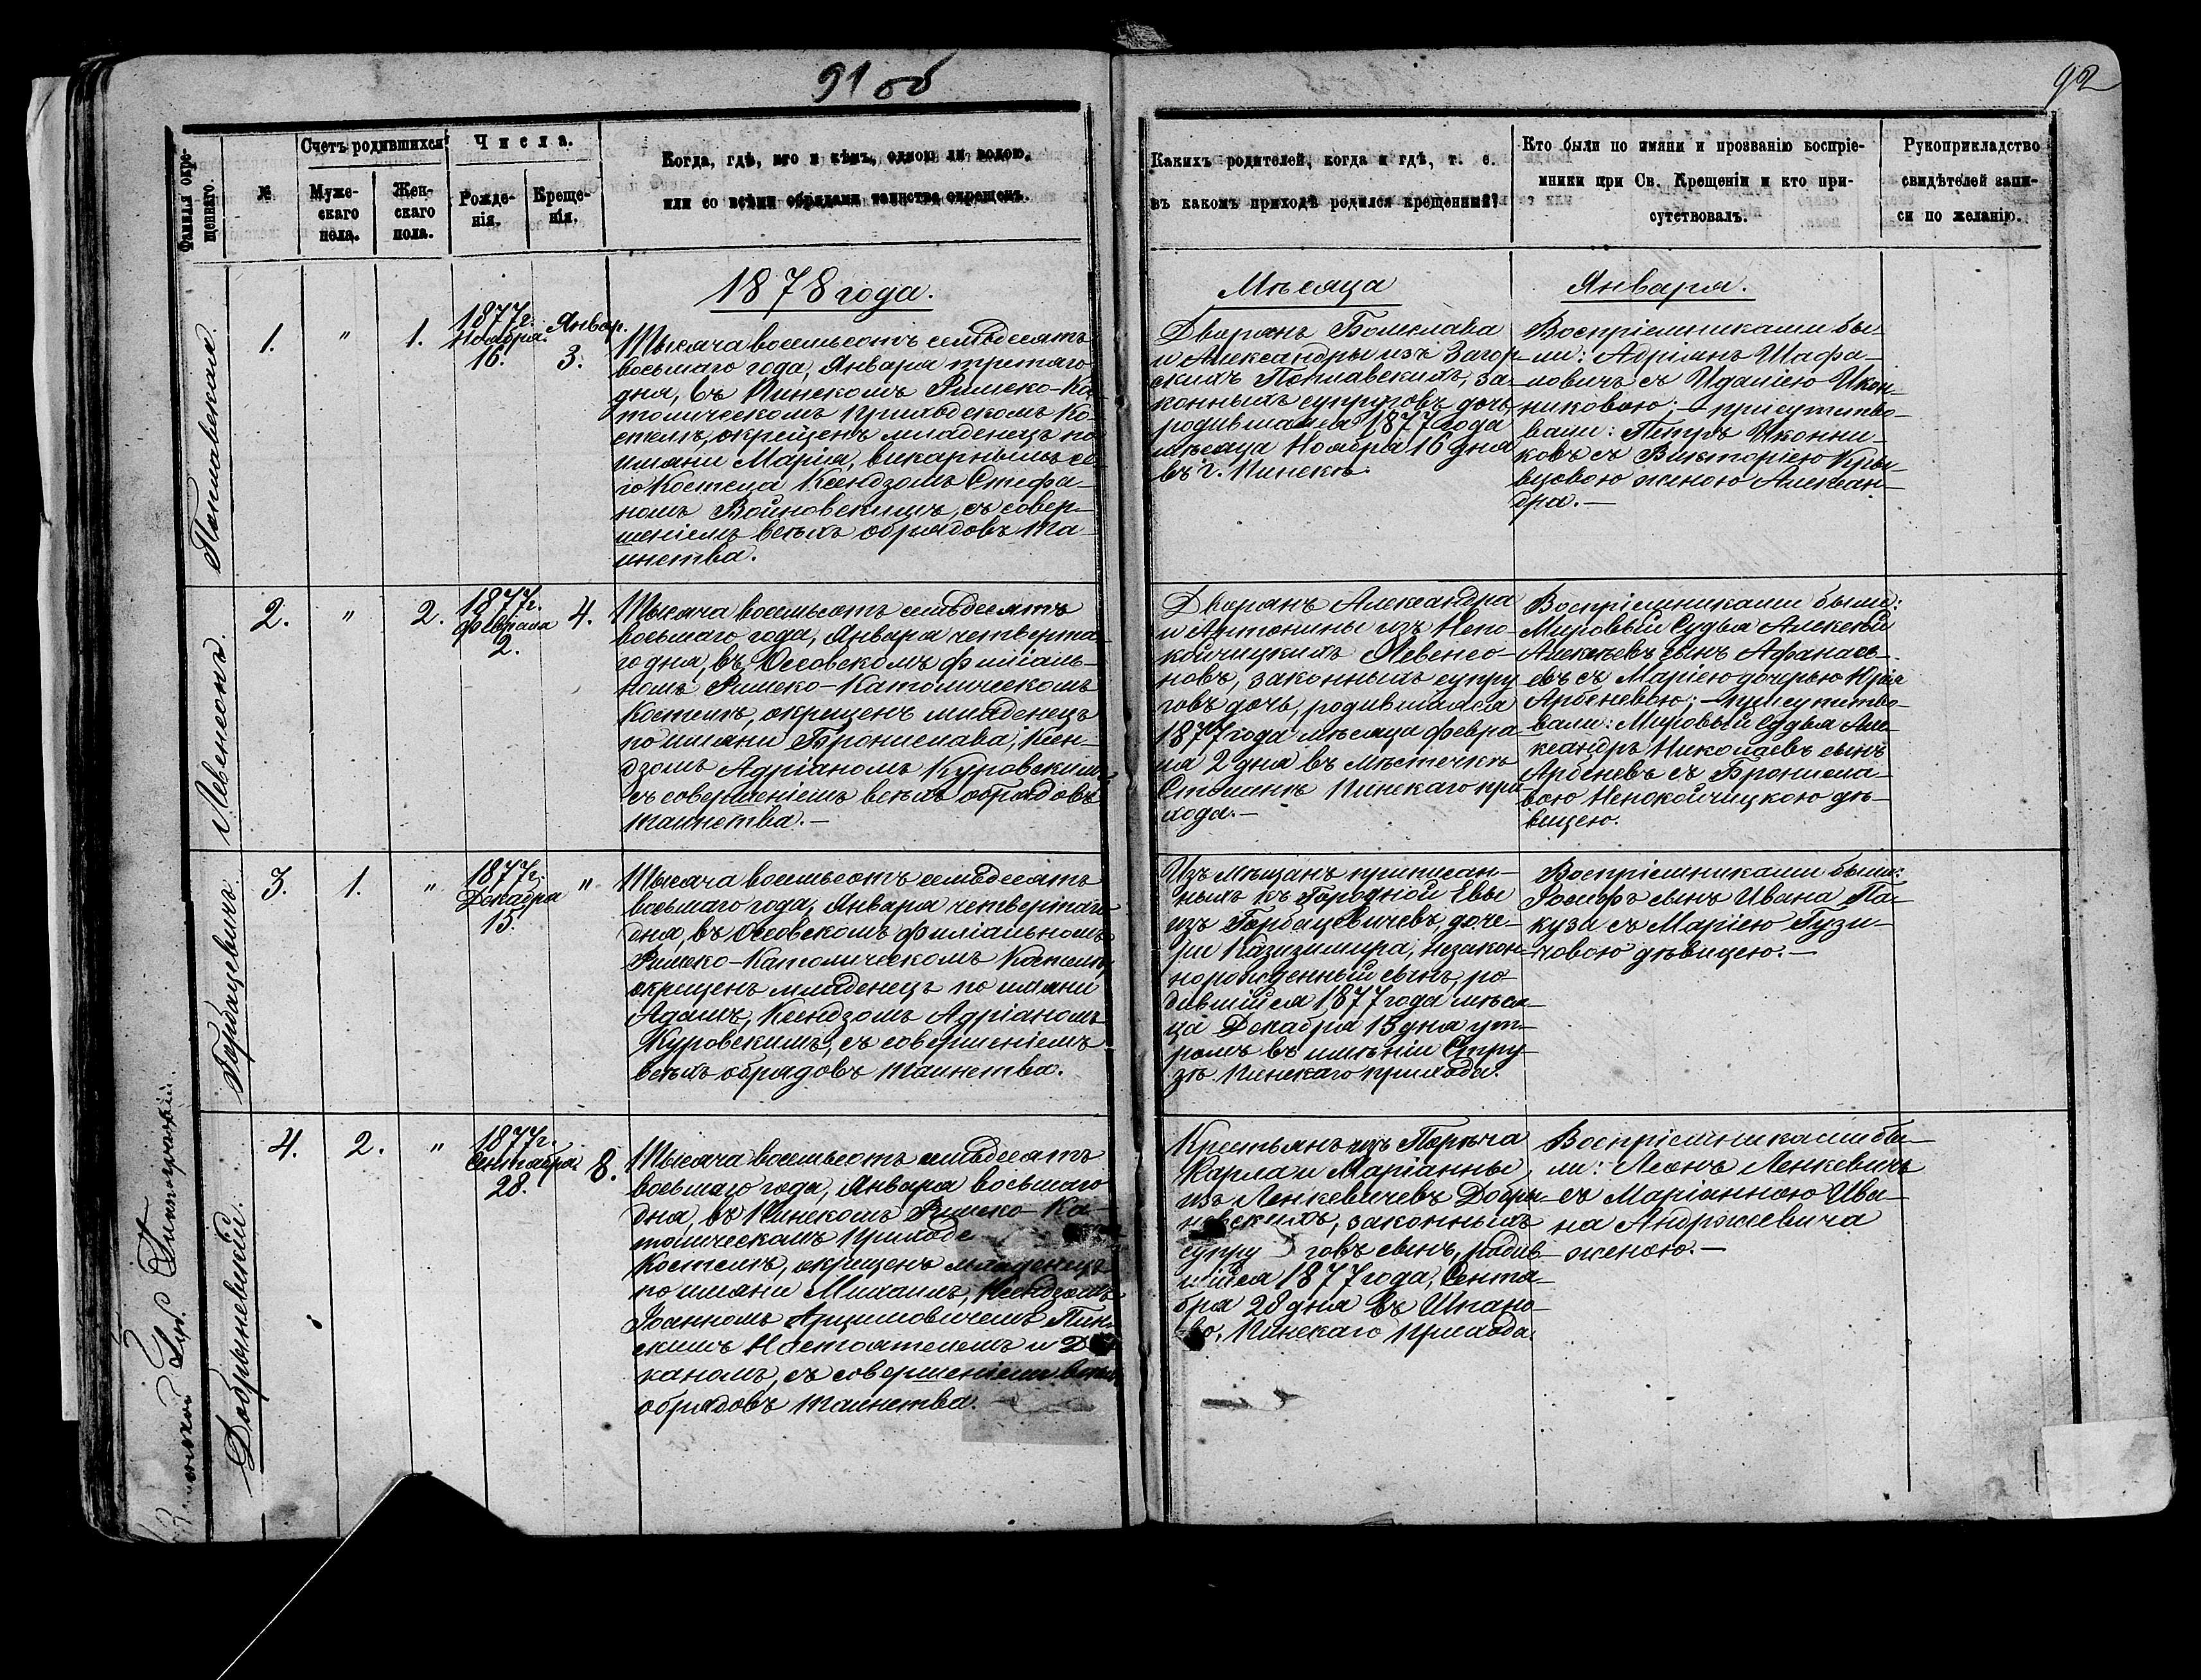 91 об
92
Фамилія окре-
щеннаго.
№
Счетъ родившихся
Муже-
скаго
пола.
Жен-
скаго
пола.
Числа.
Рожде-
нія.
Креще-
нія.
Когда, гдѣ, кто и кѣмъ, одною ли водою,
или со всѣми обрядами таинства окрещенъ.
Какихъ родителей, когда и гдѣ, т. е.
въ какомъ приходѣ родился крещенный?
Кто были по имяни и прозванію воспріе-
мники при Св. Крещеніи и кто при-
сутствовалъ.
Рукоприкладство
свидѣтелей запи-
си по желанію.
1878 года.
Мѣсяца
Января.
Поплавская.
1.
"
1.
1877г.
Ноября
16.
Январ.
3.
Тысяча восемьсотъ семьдесятъ
восьмаго года, Января третяго
дня, въ Пинскомъ Римско-Ка-
толическомъ приходскомъ Ко-
стелѣ, окрещенъ младенецъ по
имяни Марія, викарнымъ се-
го Костела Ксендзомъ Стефа-
номъ Войновскимъ, съ совер-
шеніемъ всѣхъ обрядовъ та-
инства.
Дворянъ Болеслава
и Александры изъ Загор-
скихъ Поплавскихъ, за-
конныхъ супруговъ дочь,
родившаяся 1877 года
мѣсяца Ноября 16 дня
въ г. Пинскѣ.
Воспріемниками бы-
ли: Адріанъ Шафа-
ловичъ съ Идаліею Икон-
никовою; — присутство-
вали: Петръ Иконни-
ковъ съ Викторіею
женою Алексан-
дра. —
Левенсонъ.
2.
"
2.
1877г.
Февраля
2.
4.
Тысяча восемьсотъ семьдесятъ
восьмаго года, Января четверта-
го дня, въ Осовскомъ филіаль-
номъ Римско-Католическомъ
Костелѣ, окрещенъ младенецъ
по имяни Бронислава, Ксен-
дзомъ Адріаномъ Куровскимъ
съ совершеніемъ всѣхъ обрядовъ
таинства. —
Дворянъ Александра
и Антонины изъ Непо-
койчицкихъ Левенсо-
новъ, законныхъ супру-
говъ дочь, родившаяся
1877 года мѣсяца февра-
ля 2 дня въ мѣстечкѣ
Столинѣ Пинскаго при-
хода. —
Воспріемниками были:
Мировый Судья Алексѣй
Алексѣевъ сынъ Афанась-
евъ съ Маріею дочерью
Арбеневою; — присутство-
вали: Мировый Судья Але-
ксандръ Николаевъ сынъ
Арбеневъ съ Брониcла-
вою Непокойчицкою дѣ-
вицею.
Горбацевичъ.
3.
1.
"
1877г.
Декабря
15.
"
Тысяча восемьсотъ семьдесятъ
восьмаго года, Января четвертаго
дня, въ Осовскомъ филіальномъ
Римско-Католическомъ Костелѣ,
окрещенъ младенецъ по имяни
Адамъ, Ксендзомъ Адріаномъ
Куровскимъ, съ совершеніемъ
всѣхъ обрядовъ таинства.
Изъ мѣщанъ приписан-
ныхъ къ Городной Евы
изъ Горбацевичевъ, доче-
ри Казизимира, незакон-
норожденный сынъ, ро-
дившійся 1877 года мѣся-
ца Декабря 15 дня ут-
ромъ въ имѣніи Стру-
зѣ Пинскаго прихода.
Воспріемниками были:
Іосифъ сынъ Ивана Па-
куза съ Маріею Гузи-
човою дѣвицею. —
Добрыневскій.
4.
2.
"
1877г.
Сентября
28.
8.
Тысяча восемьсотъ семьдесятъ
восьмаго года, Января восьмаго
дня, въ Пинскомъ Римско-Ка-
толическомъ Приходс
Костелѣ, окрещенъ младенецъ
по имяни Михаилъ, Ксендзомъ
Іоанномъ Арцимовичемъ Пин-
скимъ Настоятелемъ и Де-
каномъ, съ совершеніемъ всѣхъ
обрядовъ таинства. —
Крестьянъ изъ Порѣча
Карла и Маріанны
изъ Ленкевичевъ Добры-
невскихъ, законныхъ
супру говъ сынъ, родив-
шійся 1877 года, Сентя-
бря 28 дня въ Шпано-
во, Пинскаго прихода.
Воспріемниками бы-
ли: Леонъ Ленкевичъ
съ Маріанною Ива-
на Андржеевича
женою. —